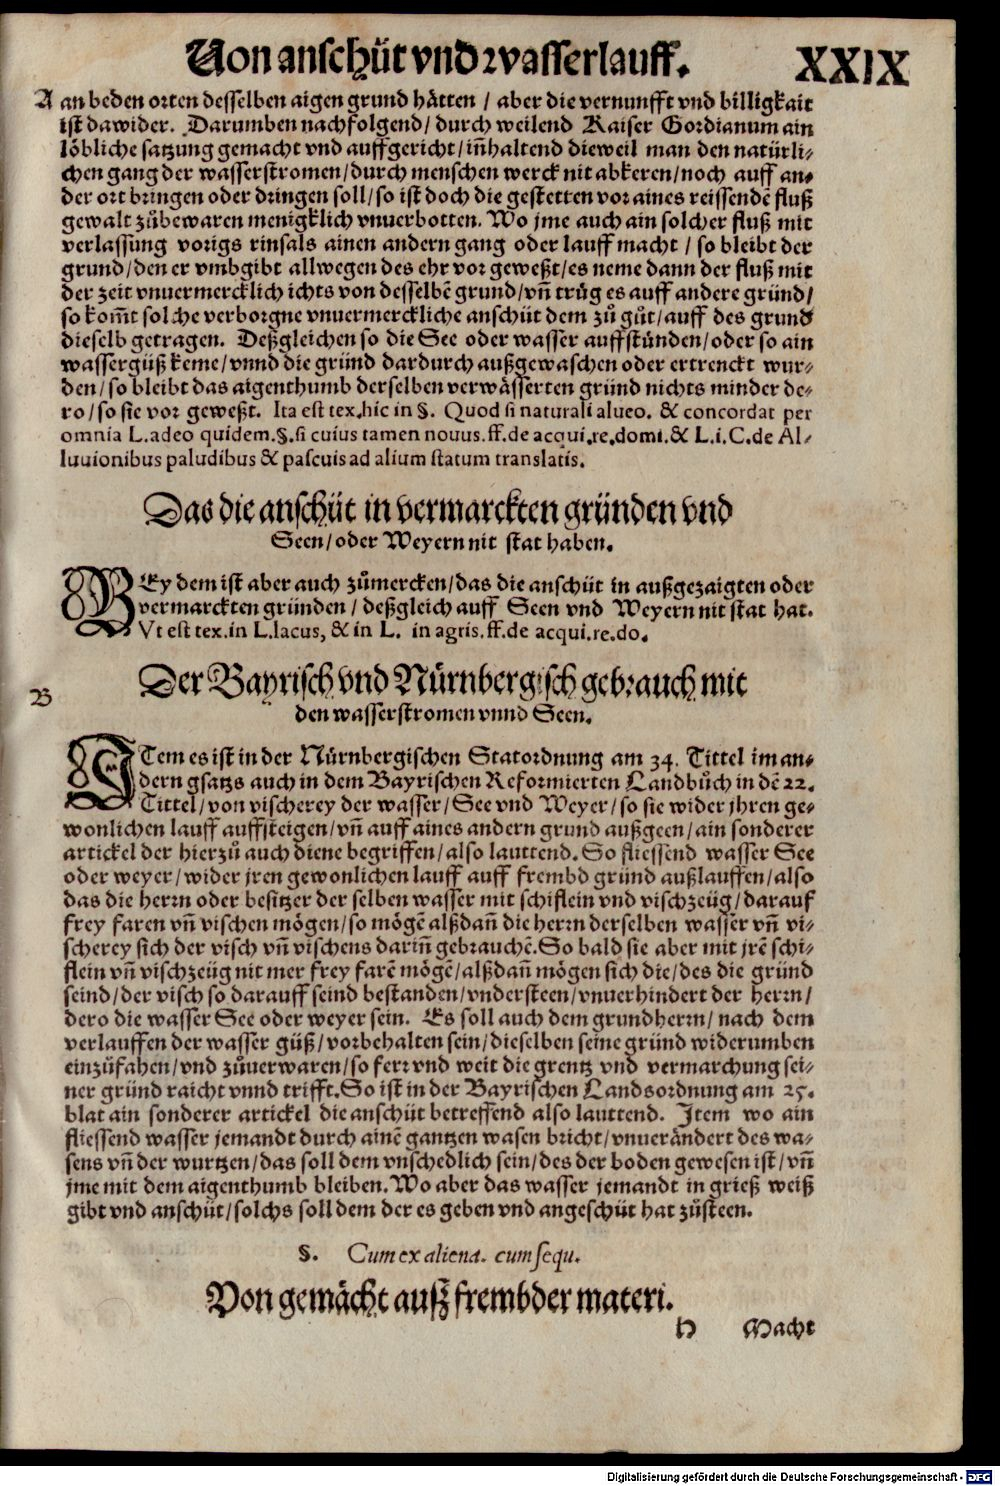 Von anschüt vnd wasserlauff. XXIX
A an beden orten desselben aigen grund hätten / aber die vernunfft vnd billigkait
ist dawider. Darumben nachfolgend / durch weilend Kaiser Gordianum ain
löbliche satzung gemacht vnd auffgericht / iñhaltend dieweil man den natürli-
chen gang der wasserstromen / durch menschen werck nit abkeren / noch auff an-
der ort bringen oder dringen soll / so ist doch die gestetten vor aines reissendẽ fluß
gewalt zůbewaren menigklich vnuerbotten. Wo jme auch ain solcher fluß mit
verlassung vorigs rinsals ainen andern gang oder lauff macht / so bleibt der
grund / den er vmbgibt allwegen des ehr vor geweßt / es neme dann der fluß mit
der zeit vnuermercklich ichts von desselbẽ grund / vñ trüg es auff andere gründ /
so kom̃t solche verborgne vnuermerckliche anschüt dem zů gůt / auff des grund
dieselb getragen. Deßgleichen so die See oder wasser auffstünden / oder so ain
wassergüß keme / vnnd die gründ dardurch außgewaschen oder ertrenckt wur-
den / so bleibt das aigenthumb derselben verwässerten gründ nichts minder de-
ro / so sie vor geweßt. Ita est tex. hic in §. Quod si naturali alueo. & concordat per
omnia L. adeo quidem. §. si cuius tamen nouus. ff. de acqui. re. domi. & L. i. C. de Al-
luuionibus paludibus & pascuis ad alium statum translatis.
Das die anschüt in vermarckten gründen vnd
Seen / oder Weyern nit stat haben.
BEy dem ist aber auch zůmercken / das die anschüt in außgezaigten oder
vermarckten gründen / deßgleich auff Seen vnd Weyern nit stat hat.
Vt est tex. in L. lacus, & in L. in agris. ff. de acqui. re. do.
Der Bayrisch vnd Nürnbergisch gebrauch mit
B
den wasserstromen vnnd Seen.
ITem es ist in der Nürnbergischen Statordnung am 34. Tittel im an-
dern gsatzs auch in dem Bayrischen Reformierten Landbůch in dẽ 22.
Tittel / von vischerey der wasser / See vnd Weyer / so sie wider jhren ge-
wonlichen lauff auffsteigen / vñ auff aines andern grund außgeen / ain sonderer
artickel der hierzů auch diene begriffen / also lauttend. So fliessend wasser See
oder weyer / wider jren gewonlichen lauff auff frembd gründ außlauffen / also
das die herrn oder besitzer der selben wasser mit schiflein vnd vischzeüg / darauf
frey faren vñ vischen mögen / so mögẽ alßdañ die herrn derselben wasser vñ vi-
scherey sich der visch vñ vischens dariñ gebrauchẽ. So bald sie aber mit jrẽ schi-
flein vñ vischzeüg nit mer frey farẽ mögẽ / alßdañ mögen sich die / des die gründ
seind / der visch so darauff seind bestanden / vndersteen / vnuerhindert der herrn /
dero die wasser See oder weyer sein. Es soll auch dem grundherrn / nach dem
verlauffen der wasser güß / vorbehalten sein / dieselben seine gründ widerumben
einzůfahen / vnd zůuerwaren / so ferr vnd weit die grentz vnd vermarchung sei-
ner gründ raicht vnnd trifft. So ist in der Bayrischen Landsordnung am 25.
blat ain sonderer artickel die anschüt betreffend also lauttend. Item wo ain
fliessend wasser jemandt durch ainẽ gantzen wasen bricht / vnuerändert des wa-
sens vñ der wurtzen / das soll dem vnschedlich sein / des der boden gewesen ist / vñ
jme mit dem aigenthumb bleiben. Wo aber das wasser jemandt in grieß weiß
gibt vnd anschüt / solchs soll dem der es geben vnd angeschüt hat zůsteen.
§. Cum ex aliena. cum sequ.
Von gemächt außz frembder materi.
H Macht
Digitalisierung gefördert durch die Deutsche Forschungsgemeinschaft - DFG